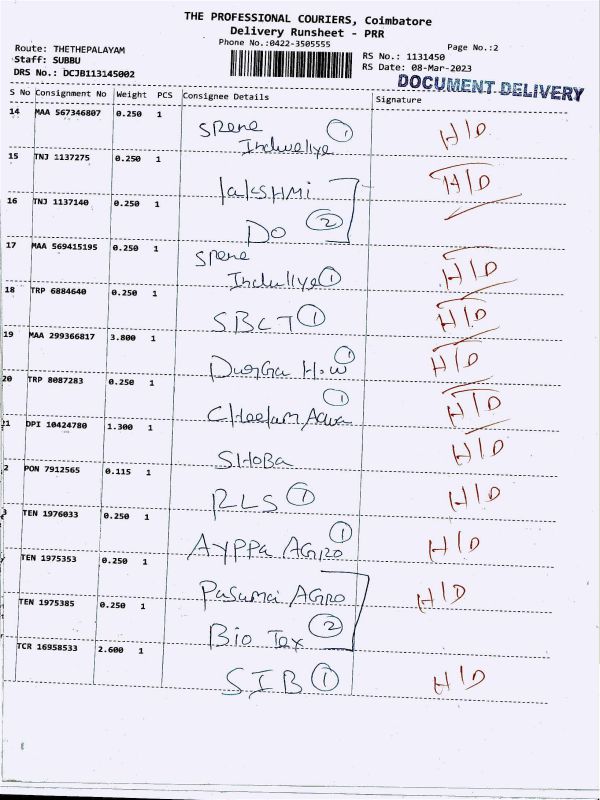 THE PROFESSIONAL COURIERS, Coimbatore
Delivery Runsheet - PRR
Phone No.:0422-3505555
Page No.:2
Route: THETHEPALAYAM
Staff: SUBBU
DRS No.: DCJB113145002
RS No.: 1131450
RS Date: 08-Mar-2023
DOCUMENT DELIVERY
S No Consignment No Weight PCS Consignee Details Signature
14 MAA 567346807 0.250 1
① H/D
15 TNJ 1137275 0.250 1
lakSHMi H/D
16 TNJ 1137140 0.250 1
Do ②
17 MAA 569415195 0.250 1
① H/D
18 TRP 6884640 0.250 1
SBCT ① H/D
19 MAA 299366817 3.800 1
Durga H.W ① H/D
20 TRP 8087283 0.250 1
① H/D
21 DPI 10424780 1.300 1
SHOBA H/D
2 PON 7912565 0.115 1
RLS ① H/D
3 TEN 1976033 0.250 1
AYPPA AGRO ① H/D
TEN 1975353 0.250 1
Pasumai AGRO H/D
TEN 1975385 0.250 1
Bio Tex ②
TCR 16958533 2.600 1
SIB ① H/D